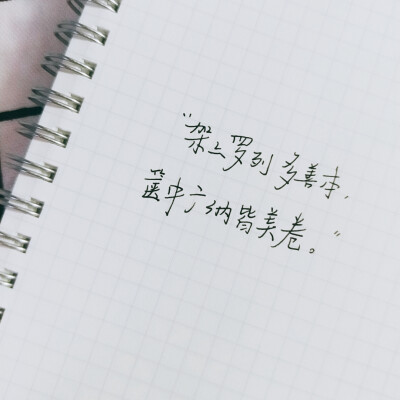 “架上罗列多善本,
箧中广纳皆美卷。”